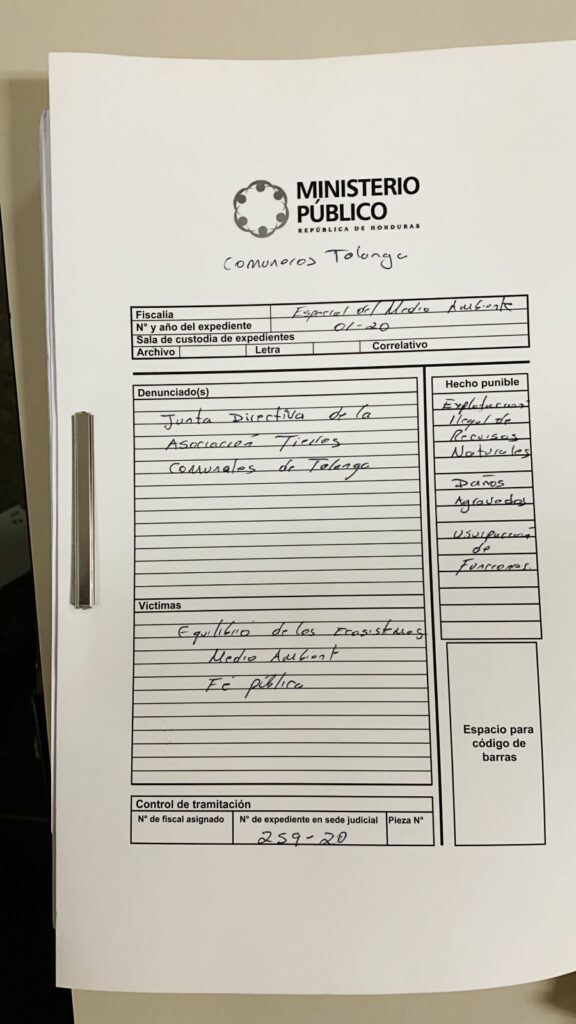 MINISTERIO
PÚBLICO
REPÚBLICA DE HONDURAS
Comuneros Tolanga
Fiscalía Especial del Medio Ambiente
N° y año del expediente 01-20
Sala de custodia de expedientes
Archivo Letra Correlativo
Denunciado(s)
Junta Directiva de la
Asociación Tierras
Comunales de Tolanga
Hecho punible
Explotación
Ilegal de
Recursos
Naturales
Daños
Agravados
Usurpación
de
Funciones
Víctimas
Equilibrio de los Ecosistemas
Medio Ambient
Fé pública
Espacio para
código de
barras
Control de tramitación
N° de fiscal asignado N° de expediente en sede judicial Pieza N°
259-20